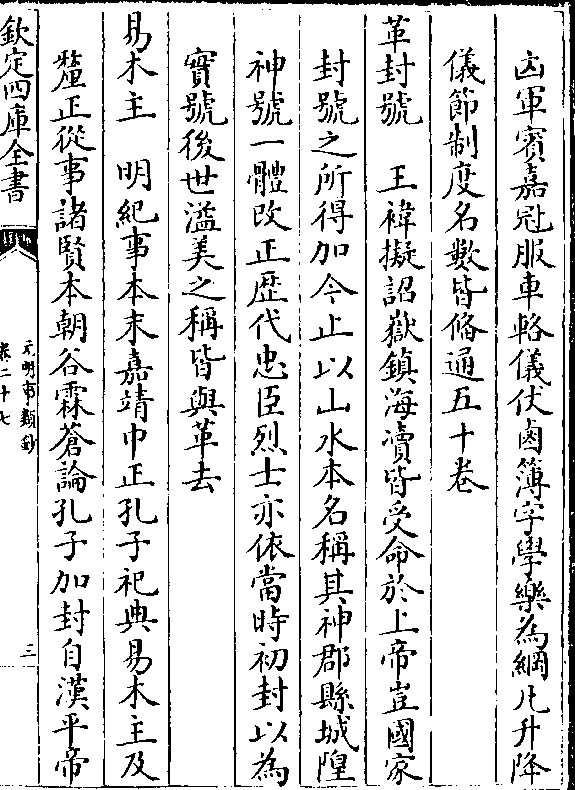 凶軍賓嘉冠服車輅儀仗鹵簿字學樂為綱凡升降
儀節制度名數皆備通五十卷
革封號　王褘擬詔嶽鎮海瀆皆受命於上帝豈國家
封號之所得加今止以山水本名稱其神郡縣城隍
神號一體改正歴代忠臣烈士亦依當時初封以為
實號後世溢美之稱皆與革去
易木主　明紀事本末嘉靖中正孔子祀典易木主及
釐正從事諸賢本朝谷霖蒼論孔子加封自漢平帝
欽定四庫全書
元明事類鈔
卷二十七
三